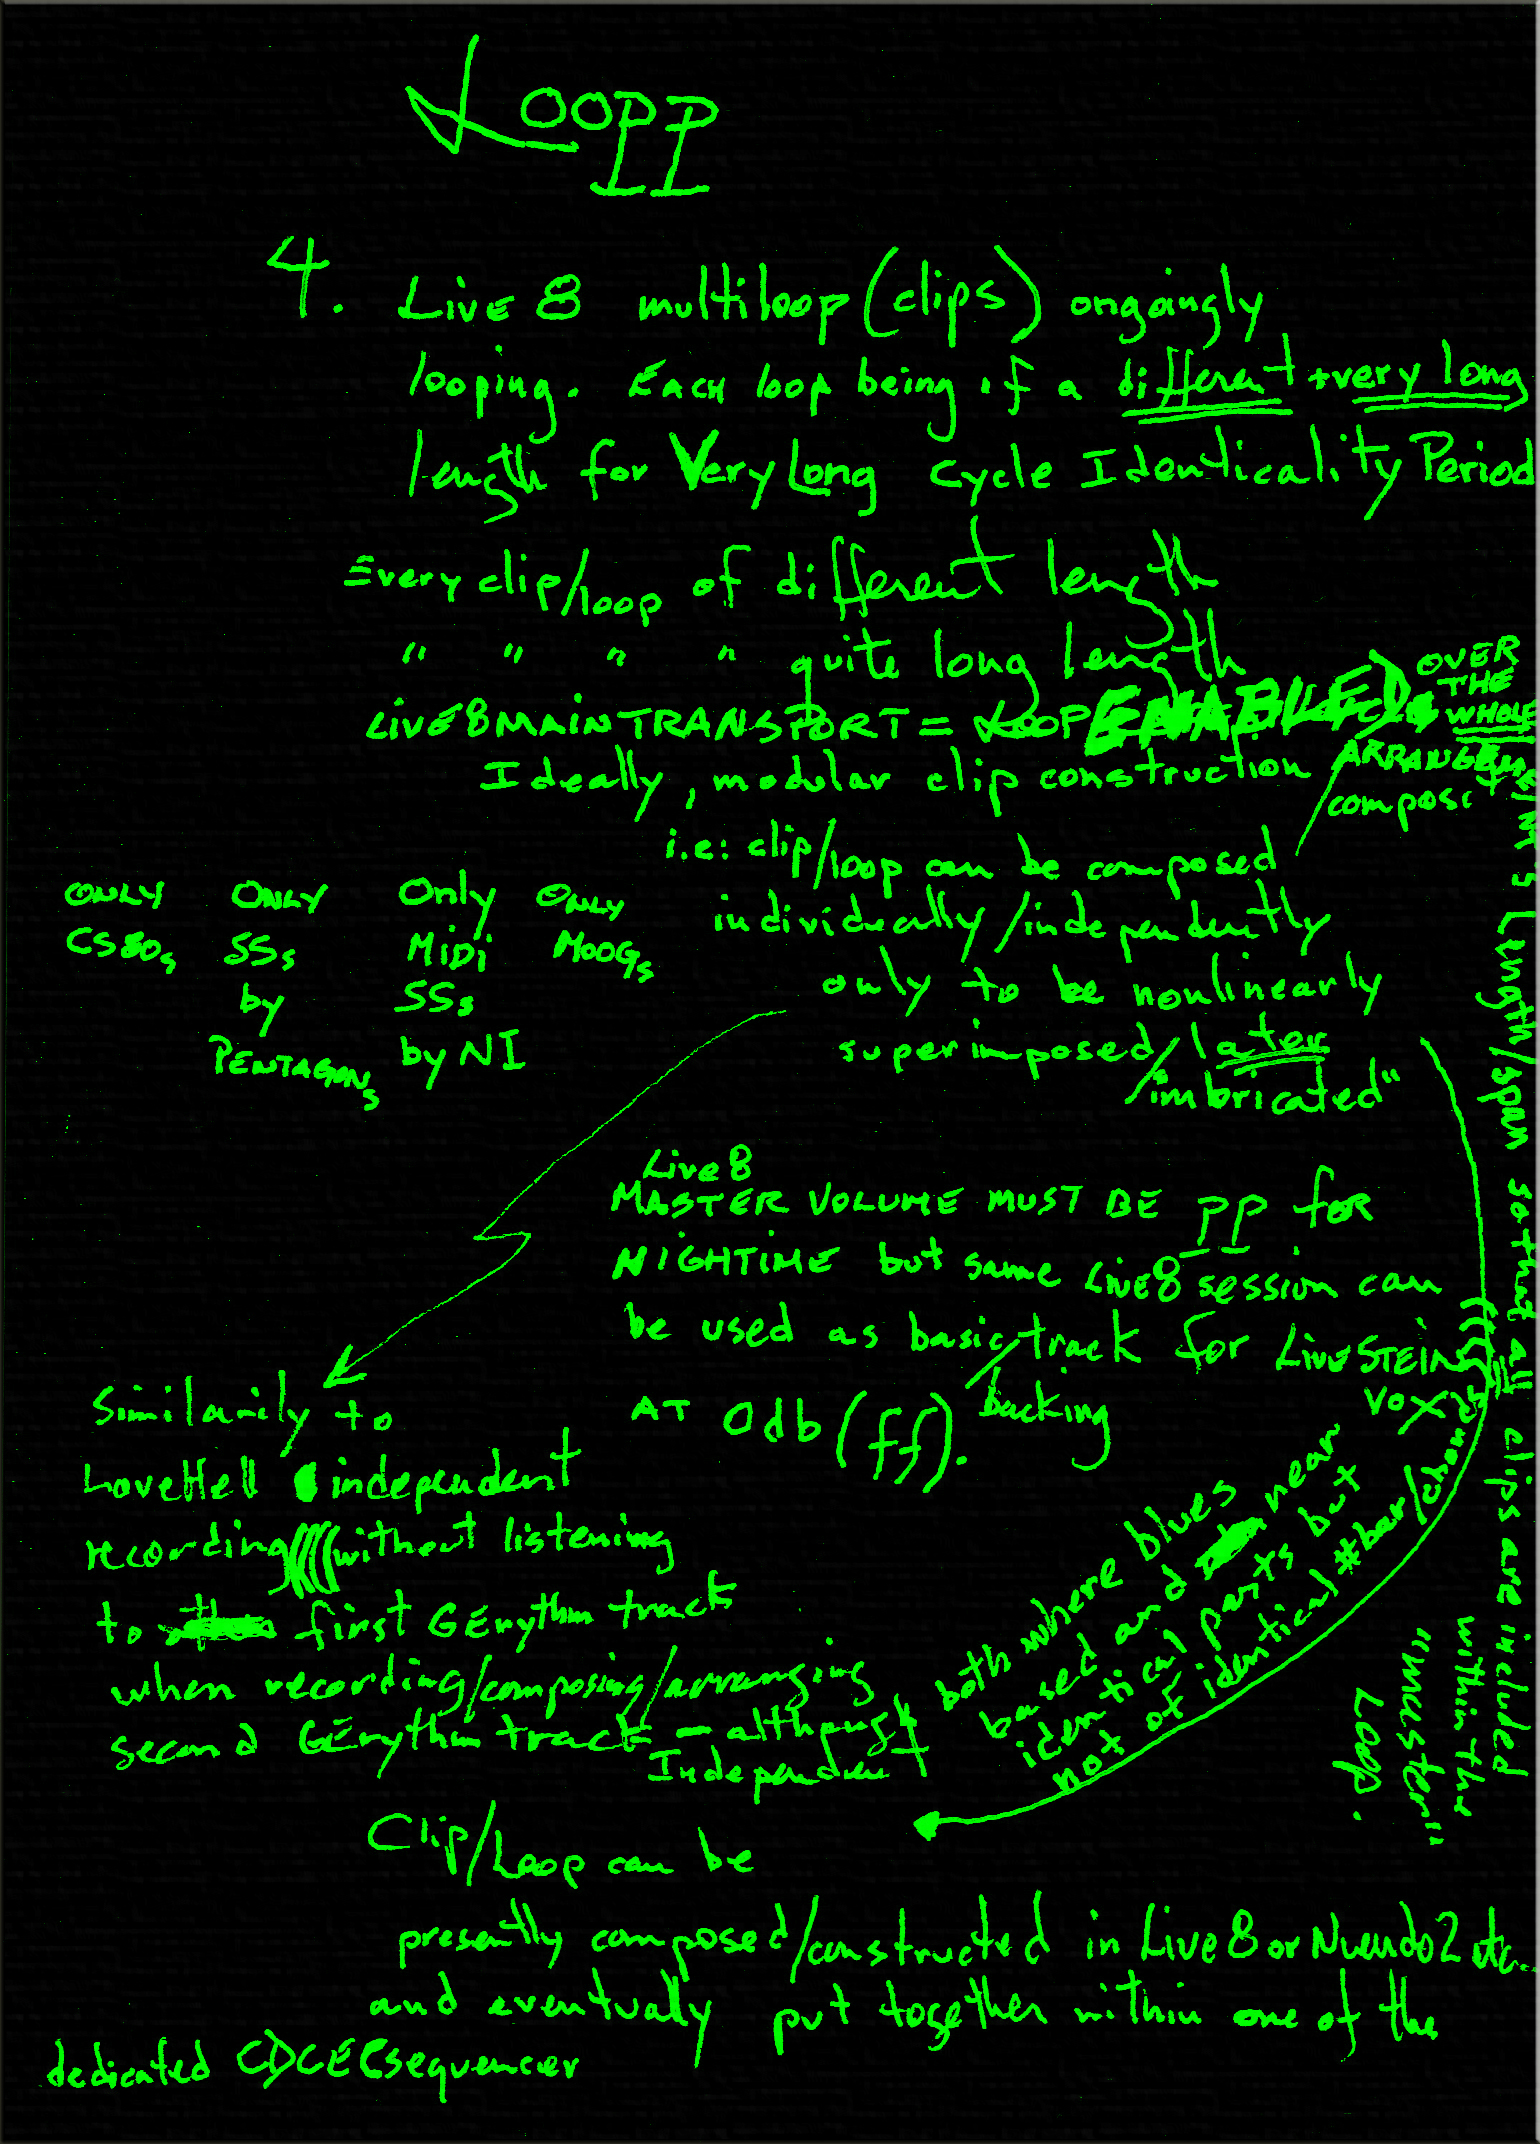 Loopp
4. Live 8 multiloop (clips) ongoingly
looping. Each loop being of a different + very long
length for Very Long Cycle Identicality Period
Every clip/loop of different length
" " " " quite long length
LIVE 8 MAIN TRANSPORT = LOOP ENABLED
OVER
THE
WHOLE
ARRANGEMENT'S Length/span so that all clips are included
within the
"master"
Loop.
Ideally, modular clip construction
compose
i.e: clip/loop can be composed
individually/independently
only to be nonlinearly
superimposed/later
/"imbricated"
ONLY
CS80s
ONLY
SSs
by
PENTAGONs
Only
MiDi
SSs
by NI
ONLY
MOOGs
Live 8
MASTER VOLUME MUST BE pp for
NIGHTIME but same Live8 session can
be used as basic/track for LiveSTEIN
backing
VOX
AT 0db (ff).
Similarily to
LoveHell independent
recording without listening
to first GErythm track
when recording/composing/arranging
second GErythm track - although
Independent
both where blues
based and near
identical parts but
not of identical #bar/chords
Clip/Loop can be
presently composed/constructed in Live 8 or Nuendo2 etc..
and eventually put together within one of the
dedicated CDCECsequencer